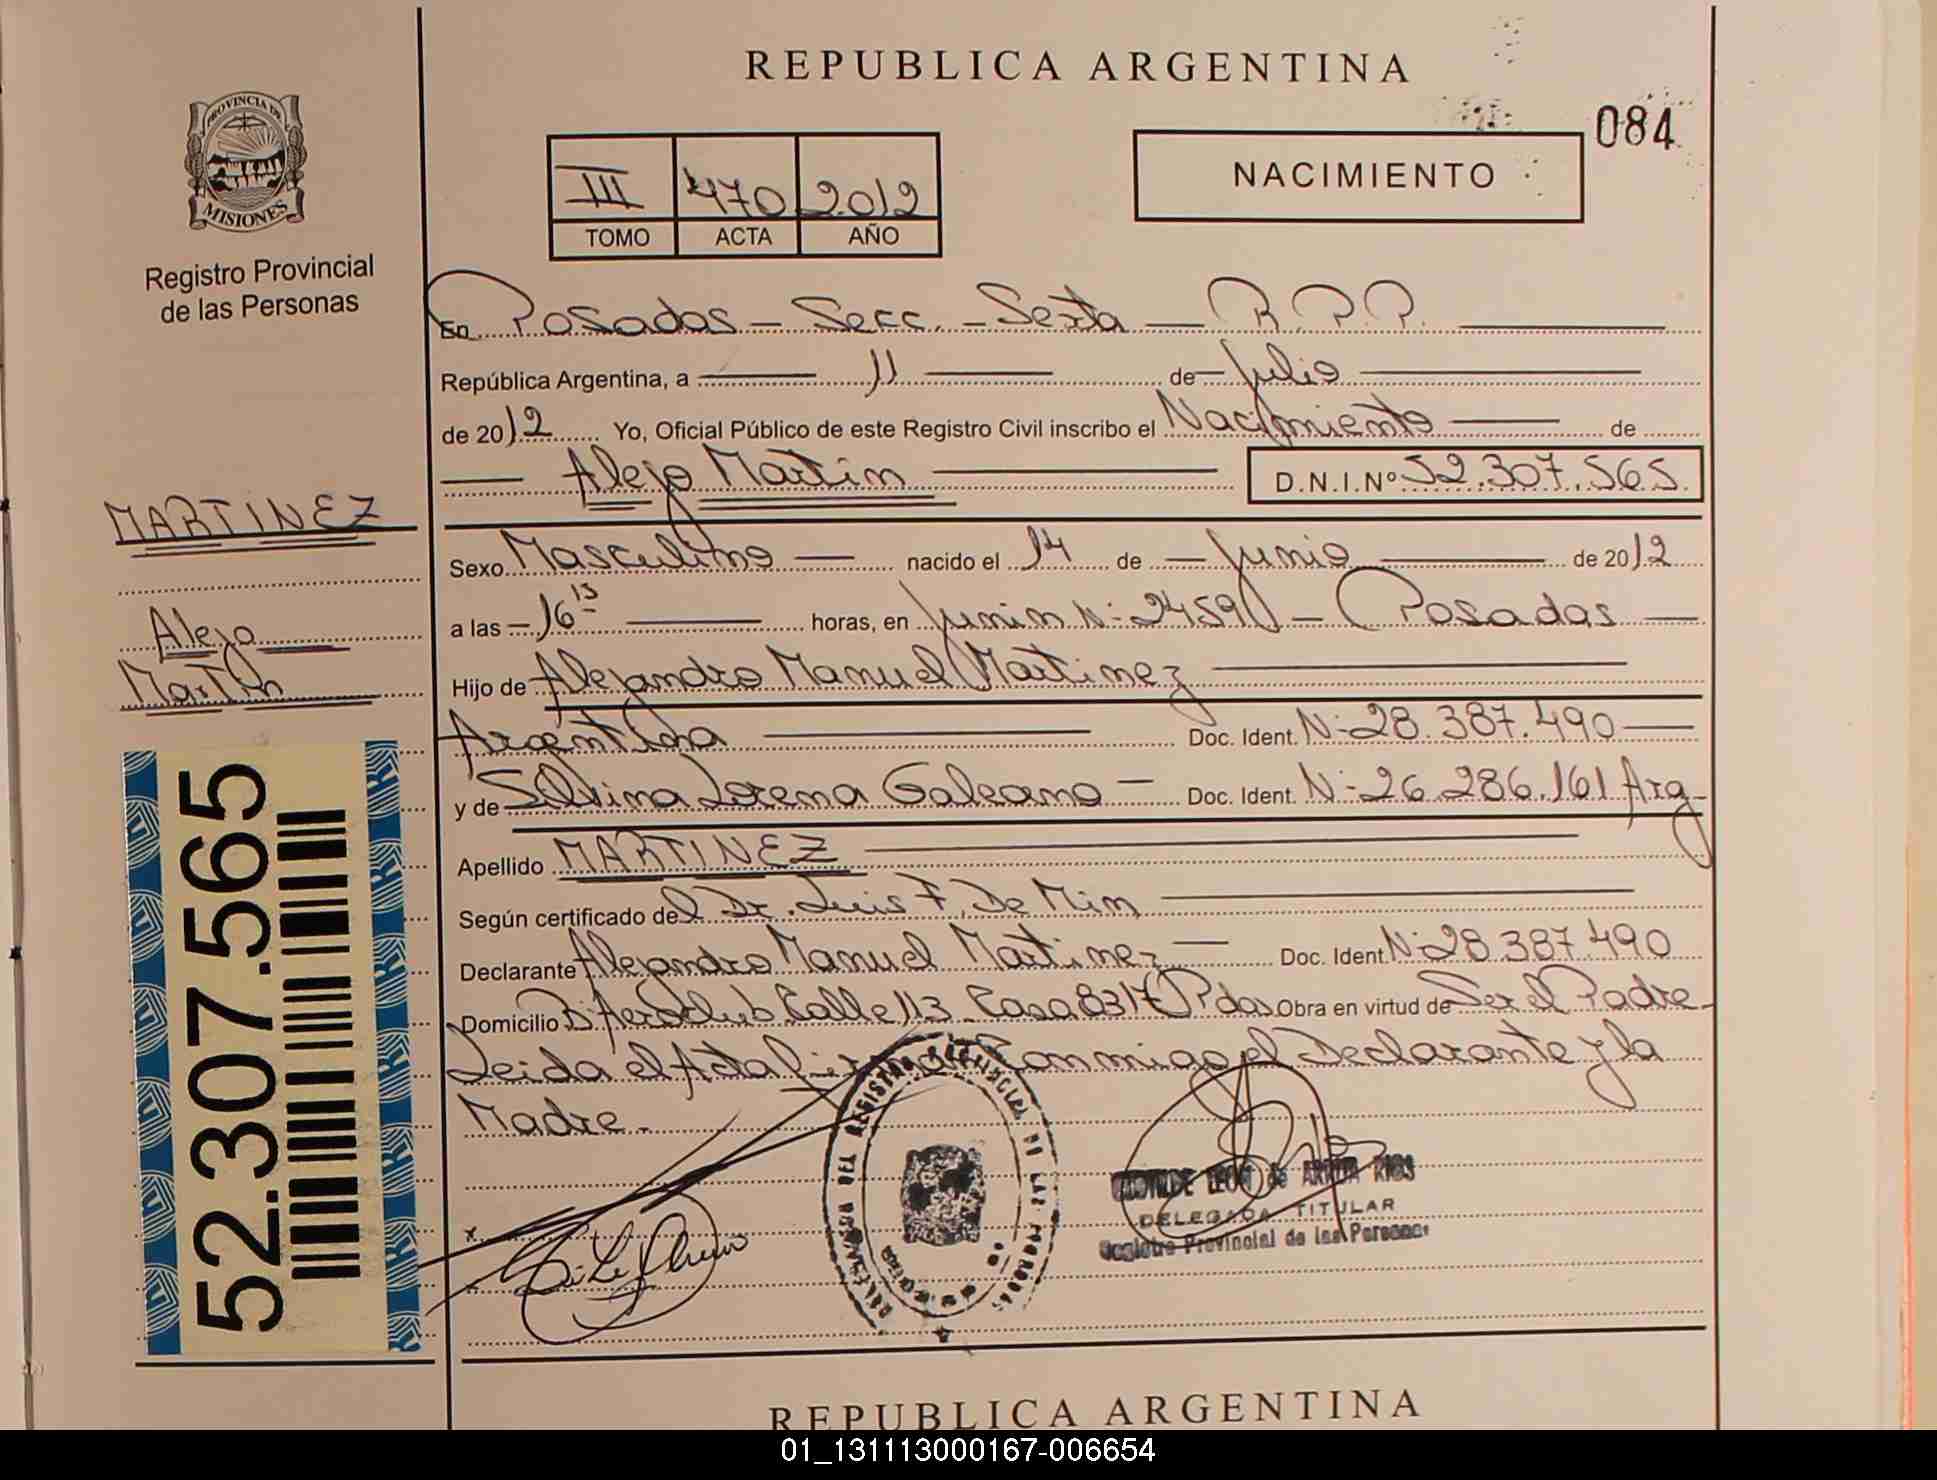 REPUBLICA ARGENTINA
084
PROVINCIA DE
MISIONES
Registro Provincial
de las Personas
III 470 2012
TOMO ACTA AÑO
NACIMIENTO
En Posadas - Secc. - Sexta - R.P.P.
República Argentina, a 11 de Julio
de 2012 Yo, Oficial Público de este Registro Civil inscribo el Nacimiento de
Alejo Martin D.N.I.Nº 52.307.565
MARTINEZ
Alejo
Martin
Sexo Masculino nacido el 14 de Junio de 2012
a las 16 15 horas, en Junin Nº 2459 - Posadas
Hijo de Alejandro Manuel Martinez
Argentina Doc. Ident. Nº 28.387.490
y de Silvina Lorena Galeano Doc. Ident. Nº 26.286.161 Arg
Apellido MARTINEZ
Según certificado del Dr. Luis F. De Mim
Declarante Alejandro Manuel Martinez Doc. Ident. Nº 28.387.490
Domicilio Bº Aeroclub Calle 113 Casa 8317 Pdas Obra en virtud de Ser el Padre
Leida el Acta firma Conmigo el Declarante y la
Madre.
52.307.565
LEON de
DELEGADA TITULAR
Registro Provincial de las Personas
REPUBLICA ARGENTINA
01_131113000167-006654